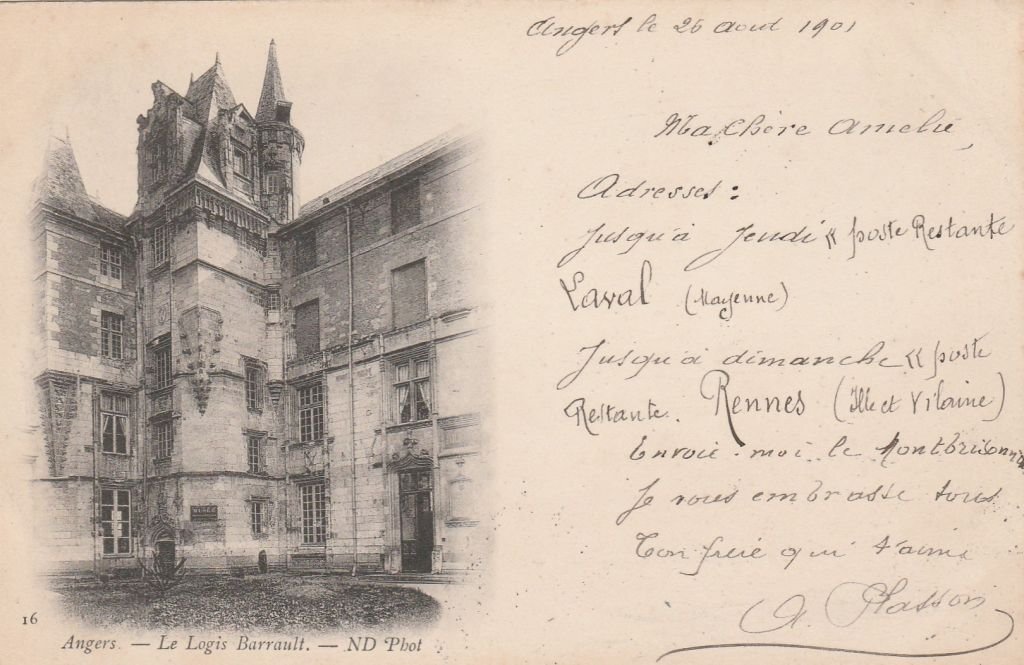 Angers le 26 aout 1901
Ma chère Amelie,
Adresses :
Jusqu'à Jeudi « poste Restante
Laval (Mayenne)
Jusqu'à dimanche « poste
Restante. Rennes (Ille et Vilaine)
Envoie-moi le Montbrisonnais
Je vous embrasse tous
Ton frère qui t'aime
A. Plasson
MUSÉE
16
Angers. — Le Logis Barrault. — ND Phot